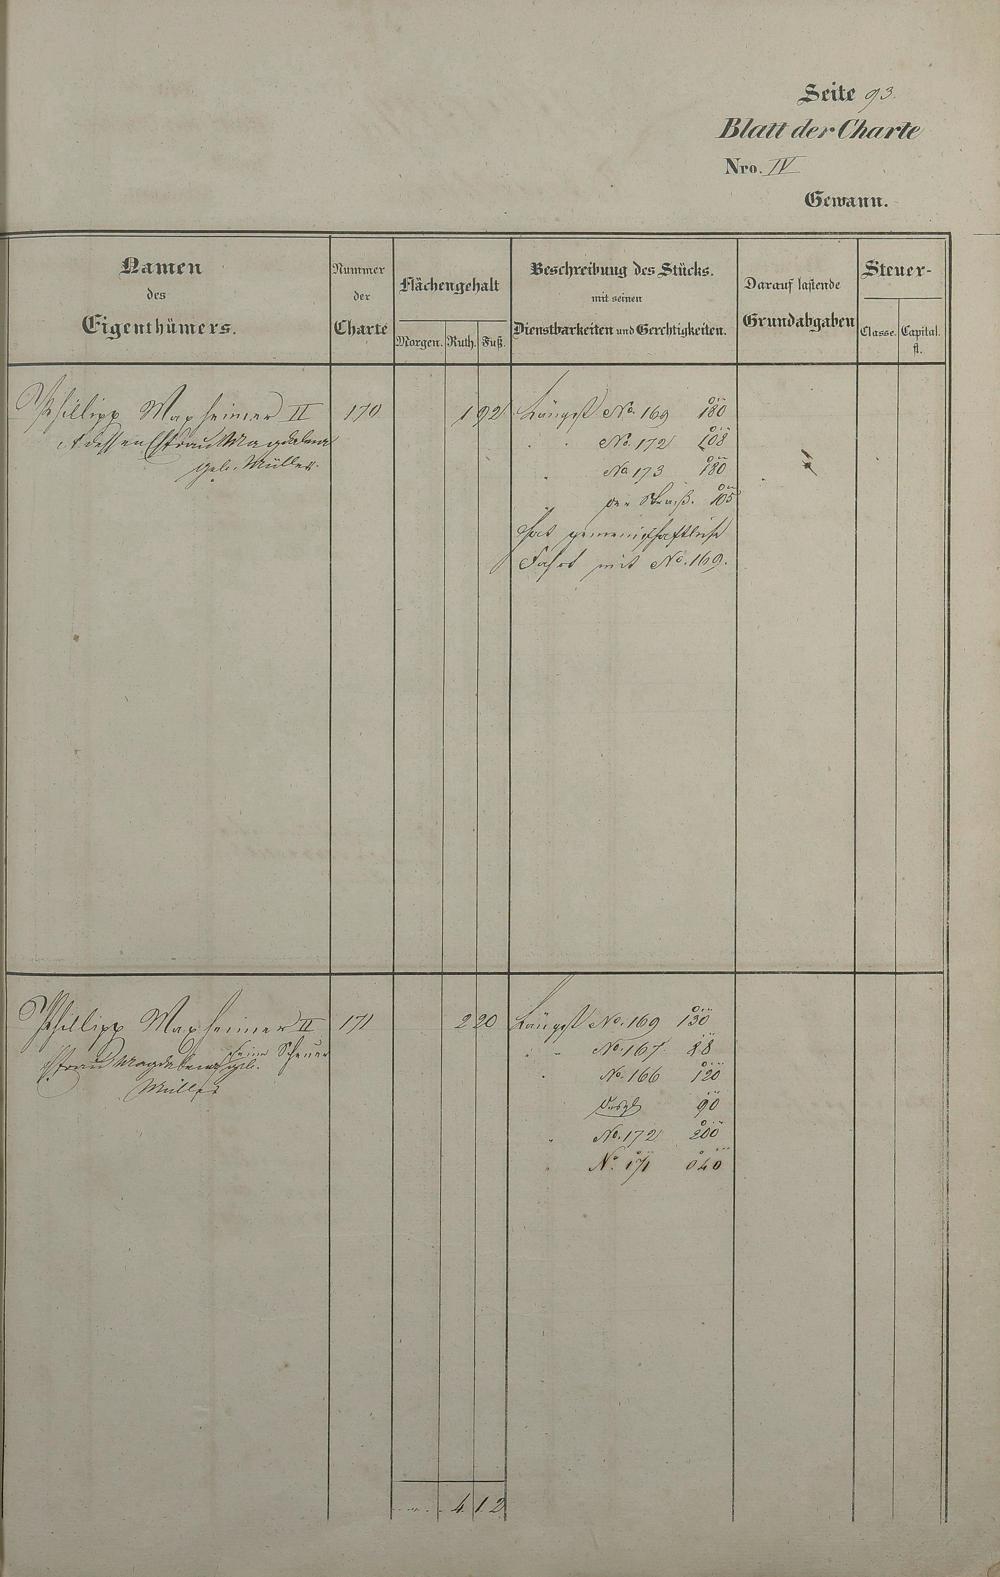 Seite 93.
Blatt der Charte
Nro. IV
Gewann.
Namen
des
Eigenthümers.
Nummer
der
Charte
Flächengehalt
Morgen. Ruth. Fuß.
Beschreibung des Stücks.
mit seinen
Dienstbarkeiten und Gerechtigkeiten.
Darauf lastende
Grundabgaben
Steuer-
Classe. Capital.
fl.
Phillipp Maxheimer II 170 1 92 Längst No. 169 180
et dessen Ehefrau Magdalena " No. 172 108
geb. Müller. " No 173 180
" der Straß. 105
hat gemeinschaftliche
Fahrt mit No. 169.
Phillipp Maxheimer II 171 2 20 Längst No. 169 130
Ehefrau Magdalena geb. Scheuer " No. 167 28
Müller " No. 166 120
90
" No. 172 200
" No. 171 040
4 12